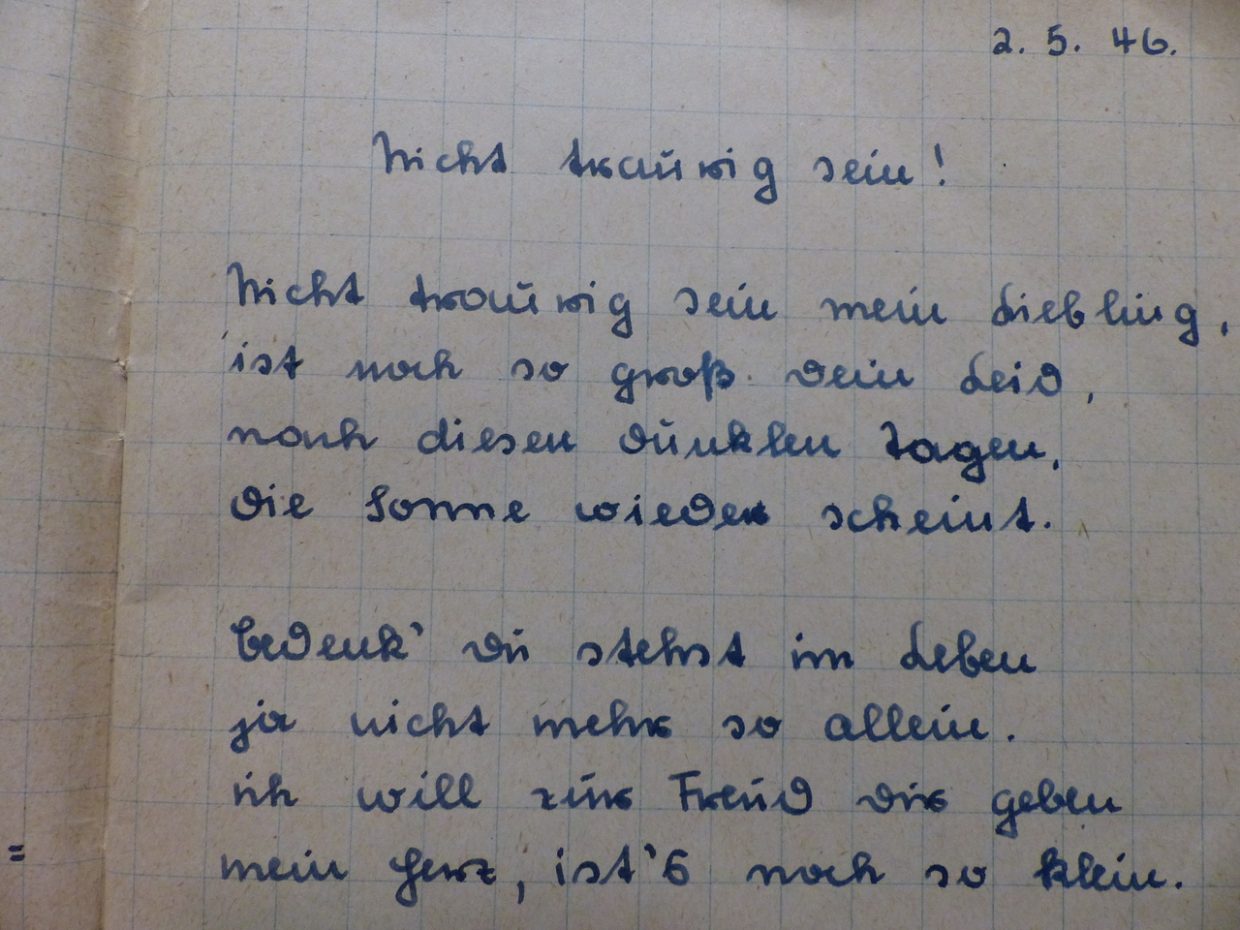 2. 5. 46.
Nicht traurig sein!
Nicht traurig sein mein Liebling,
ist noch so groß dein Leid,
nach diesen dunklen Tagen,
die Sonne wieder scheint.
Bedenk' du stehst im Leben
ja nicht mehr so allein.
ich will zur Freud dir geben
mein Herz, ist's noch so klein.
=